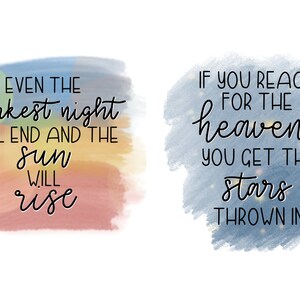 EVEN THE
rkest night
L END AND THE
sun
WILL
rise
IF YOU REAC
FOR THE
heaven
YOU GET TH
stars
THROWN IN